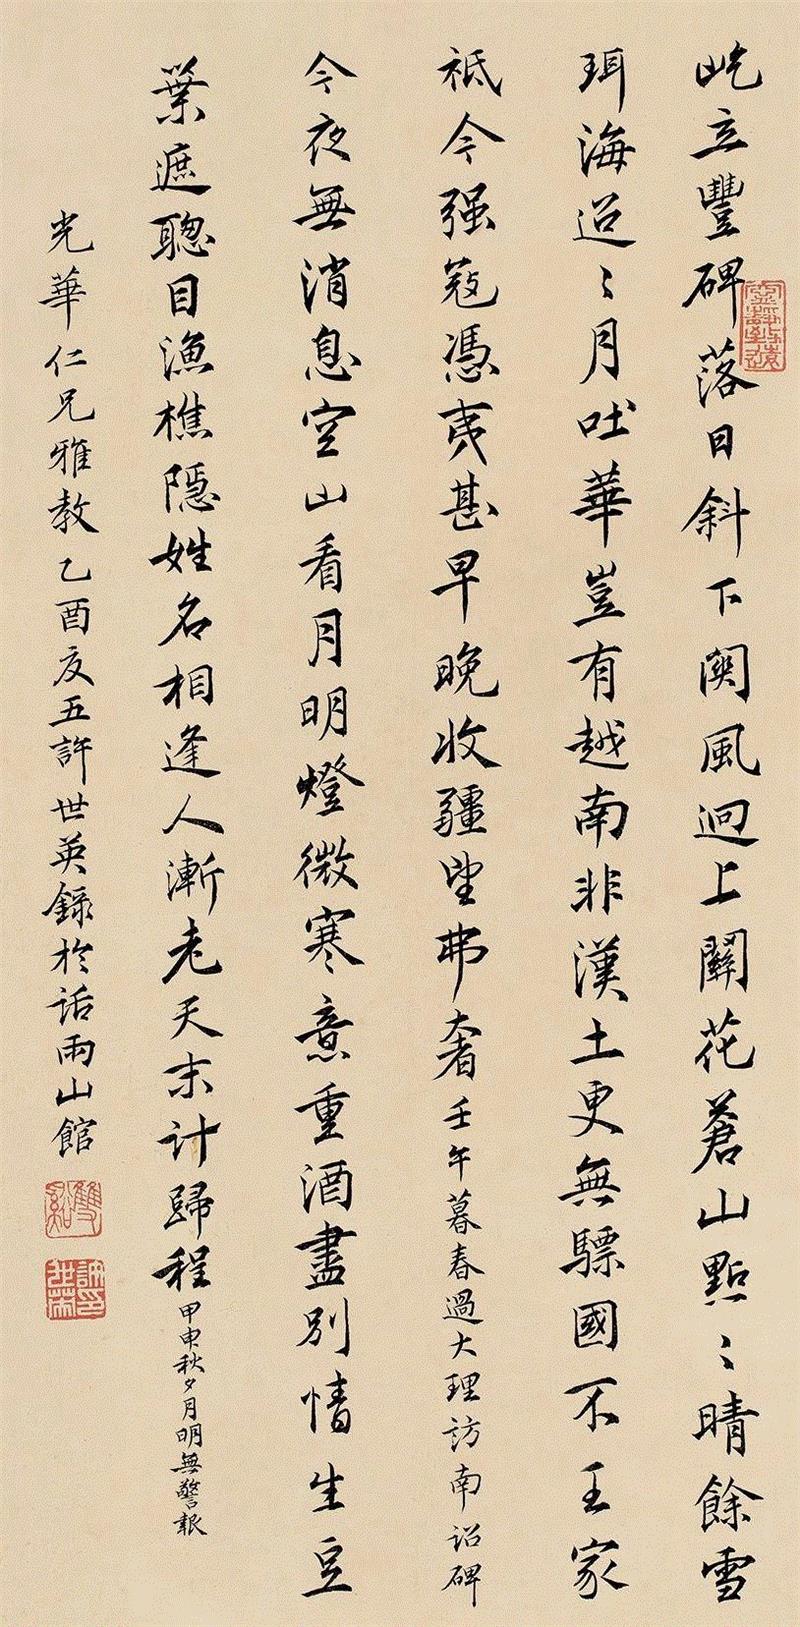 屹立豐碑落日斜下關風迴上關花蒼山點〻晴餘雪
珥海迢〻月吐華豈有越南非漢土更無驃國不王家
祇今强寇憑夷甚早晚收疆望弗奢壬午暮春過大理訪南詔碑
今夜無消息空山看月明燈微寒意重酒盡別情生豆
葉遮聰目漁樵隱姓名相逢人漸老天末計歸程甲申秋夕月明無警報
光華仁兄雅教乙酉夏五許世英錄於話雨山館
雙谿
許世英印
寧靜致遠